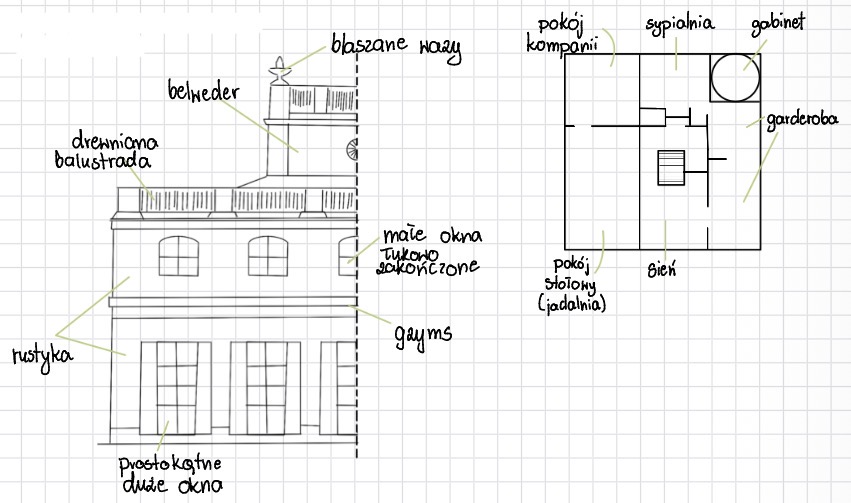 blaszane wazy
belweder
drewniana
balustrada
małe okna
łukowo
zakończone
gzyms
rustyka
prostokątne
duże okna
pokój
kompanii
sypialnia
gabinet
garderoba
pokój
stołowy
(jadalnia)
sień